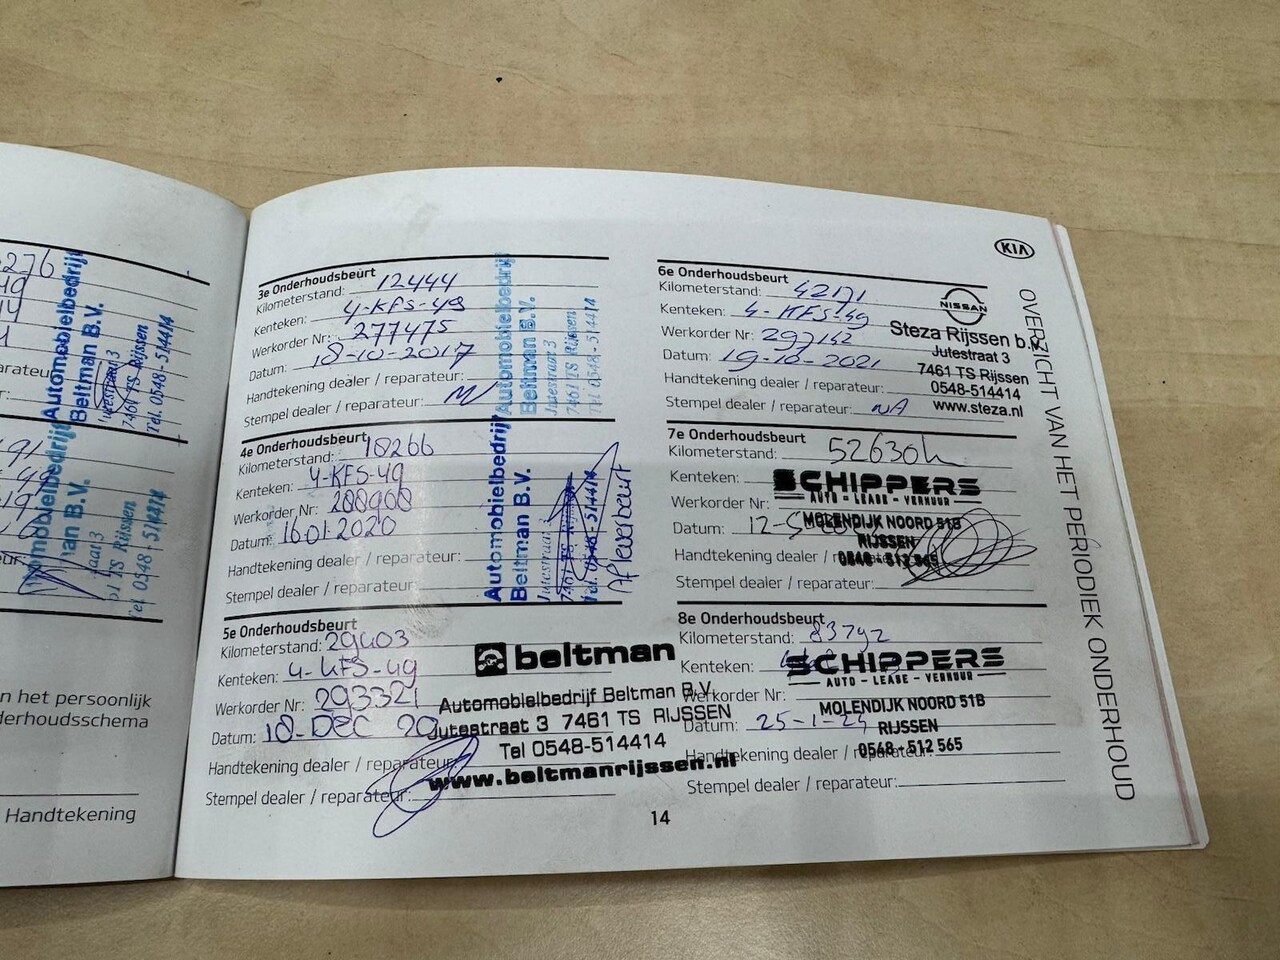 276
Automobielbedrijf
Beltman B.V.
Jutestraat 3
7461 TS Rijssen
Tel. 0548-514414
n het persoonlijk
derhoudsschema
Handtekening
3e Onderhoudsbeurt
Kilometerstand: 12444
Kenteken: 4-KFS-49
Werkorder Nr: 277475
Datum: 18-10-2017
Handtekening dealer / reparateur:
Stempel dealer / reparateur:
Automobielbedrijf
Beltman B.V.
Jutestraat 3
7461 TS Rijssen
Tel 0548-514414
4e Onderhoudsbeurt
Kilometerstand: 18266
Kenteken: 4-KFS-49
Werkorder Nr: 288908
Datum: 16-01-2020
Handtekening dealer / reparateur:
Stempel dealer / reparateur:
Automobielbedrijf
Beltman B.V.
Jutestraat 3
7461 TS Rijssen
Tel. 0548-514414
Afleverbeurt
5e Onderhoudsbeurt
Kilometerstand: 29403
Kenteken: 4-KFS-49
Werkorder Nr: 293321
Datum: 18-DEC 20
Handtekening dealer / reparateur:
Stempel dealer / reparateur:
beltman
Automobielbedrijf Beltman B.V.
Jutestraat 3 7461 TS RIJSSEN
Tel 0548-514414
www.beltmanrijssen.nl
KIA
6e Onderhoudsbeurt
Kilometerstand: 42171
Kenteken: 4-KFS-49
Werkorder Nr: 297142
Datum: 19-10-2021
Handtekening dealer / reparateur:
Stempel dealer / reparateur: NA
NISSAN
Steza Rijssen b.v.
Jutestraat 3
7461 TS Rijssen
0548-514414
www.steza.nl
7e Onderhoudsbeurt
Kilometerstand: 52630
Kenteken:
Werkorder Nr:
Datum: 12-5-
Handtekening dealer / reparateur:
Stempel dealer / reparateur:
SCHIPPERS
AUTO - LEASE - VERHUUR
MOLENDIJK NOORD 51B
RIJSSEN
0548 - 512 565
8e Onderhoudsbeurt
Kilometerstand: 83792
Kenteken:
Werkorder Nr:
Datum: 25-1-24
Handtekening dealer / reparateur:
Stempel dealer / reparateur:
SCHIPPERS
AUTO - LEASE - VERHUUR
MOLENDIJK NOORD 51B
RIJSSEN
0548 - 512 565
OVERZICHT VAN HET PERIODIEK ONDERHOUD
14